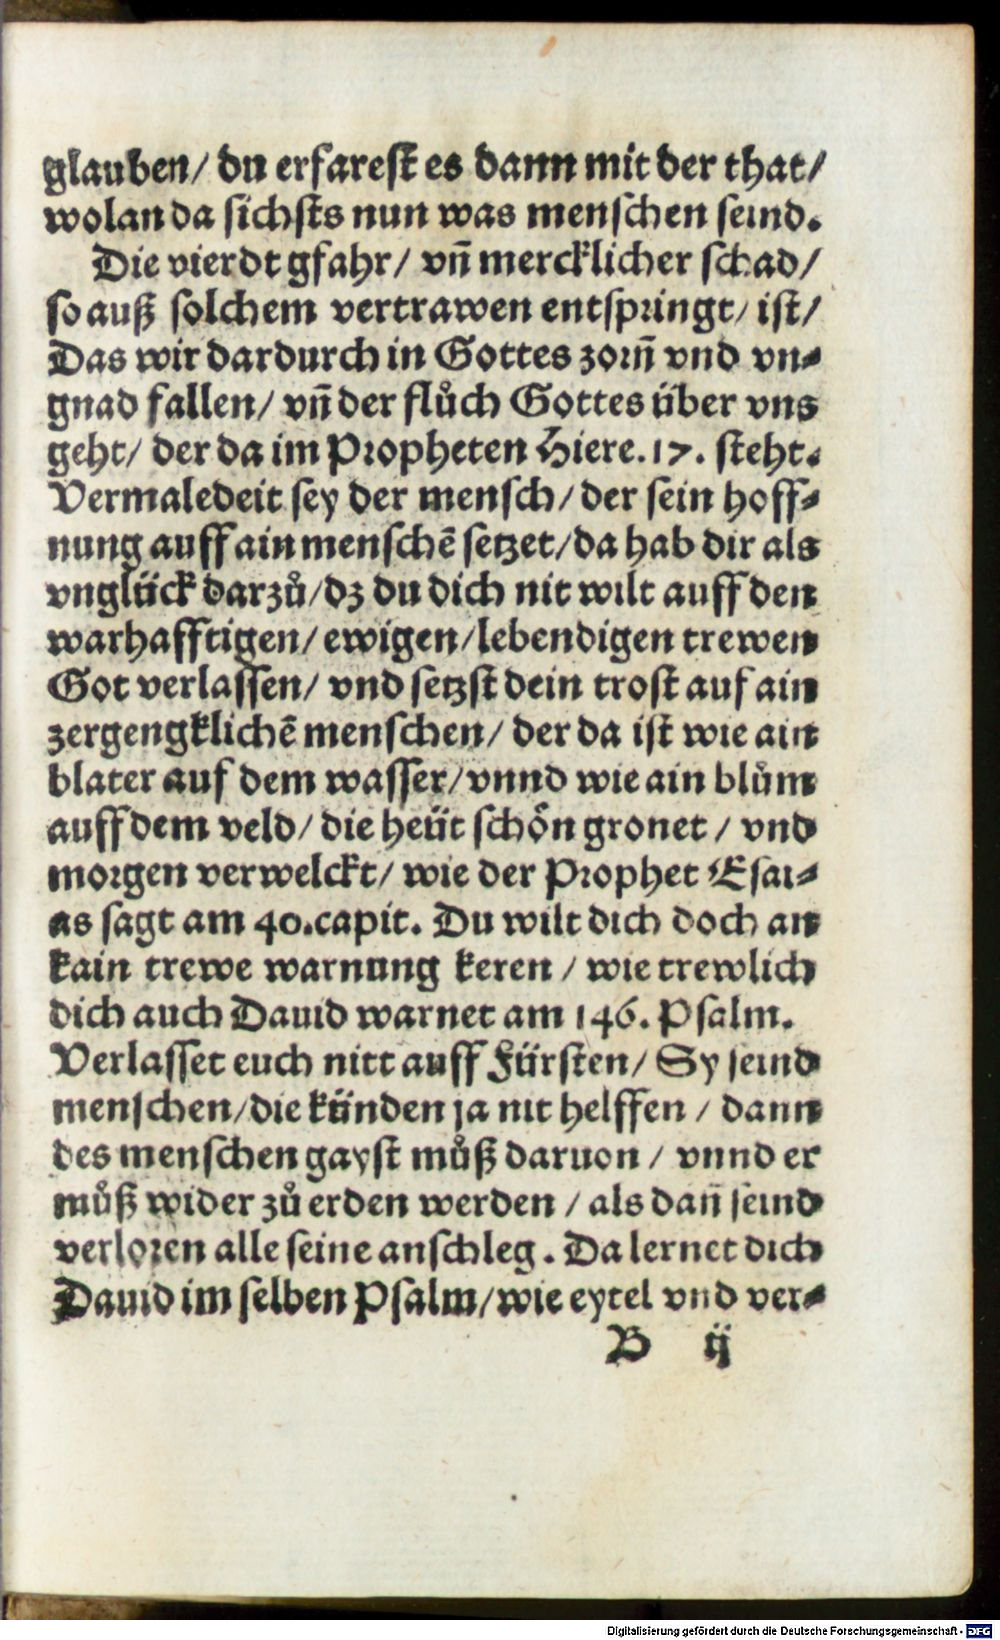 glauben/ du erfarest es dann mit der that/
wolan da sichsts nun was menschen seind.
Die vierdt gfahr/ vñ mercklicher schad/
so auß solchem vertrawen entspringt/ ist/
Das wir dardurch in Gottes zorñ vnd vn-
gnad fallen/ vñ der flůch Gottes über vns
geht/ der da im Propheten Hiere. 17. steht.
Vermaledeit sey der mensch/ der sein hoff-
nung auff ain menschē setzet/ da hab dir als
vnglück darzů/ dz du dich nit wilt auff den
warhafftigen/ ewigen/ lebendigen trewen
Got verlassen/ vnd setzst dein trost auf ain
zergengklichē menschen/ der da ist wie ain
blater auf dem wasser/ vnnd wie ain blům
auff dem veld/ die heüt schön gronet/ vnd
morgen verwelckt/ wie der Prophet Esai-
as sagt am 40. capit. Du wilt dich doch an
kain trewe warnung keren/ wie trewlich
dich auch Dauid warnet am 146. Psalm.
Verlasset euch nitt auff Fürsten/ Sy seind
menschen/ die künden ja nit helffen/ dann
des menschen gayst můß daruon/ vnnd er
můß wider zů erden werden/ als dañ seind
verloren alle seine anschleg. Da lernet dich
Dauid im selben Psalm/ wie eytel vnd ver-
B ij
Digitalisierung gefördert durch die Deutsche Forschungsgemeinschaft - DFG